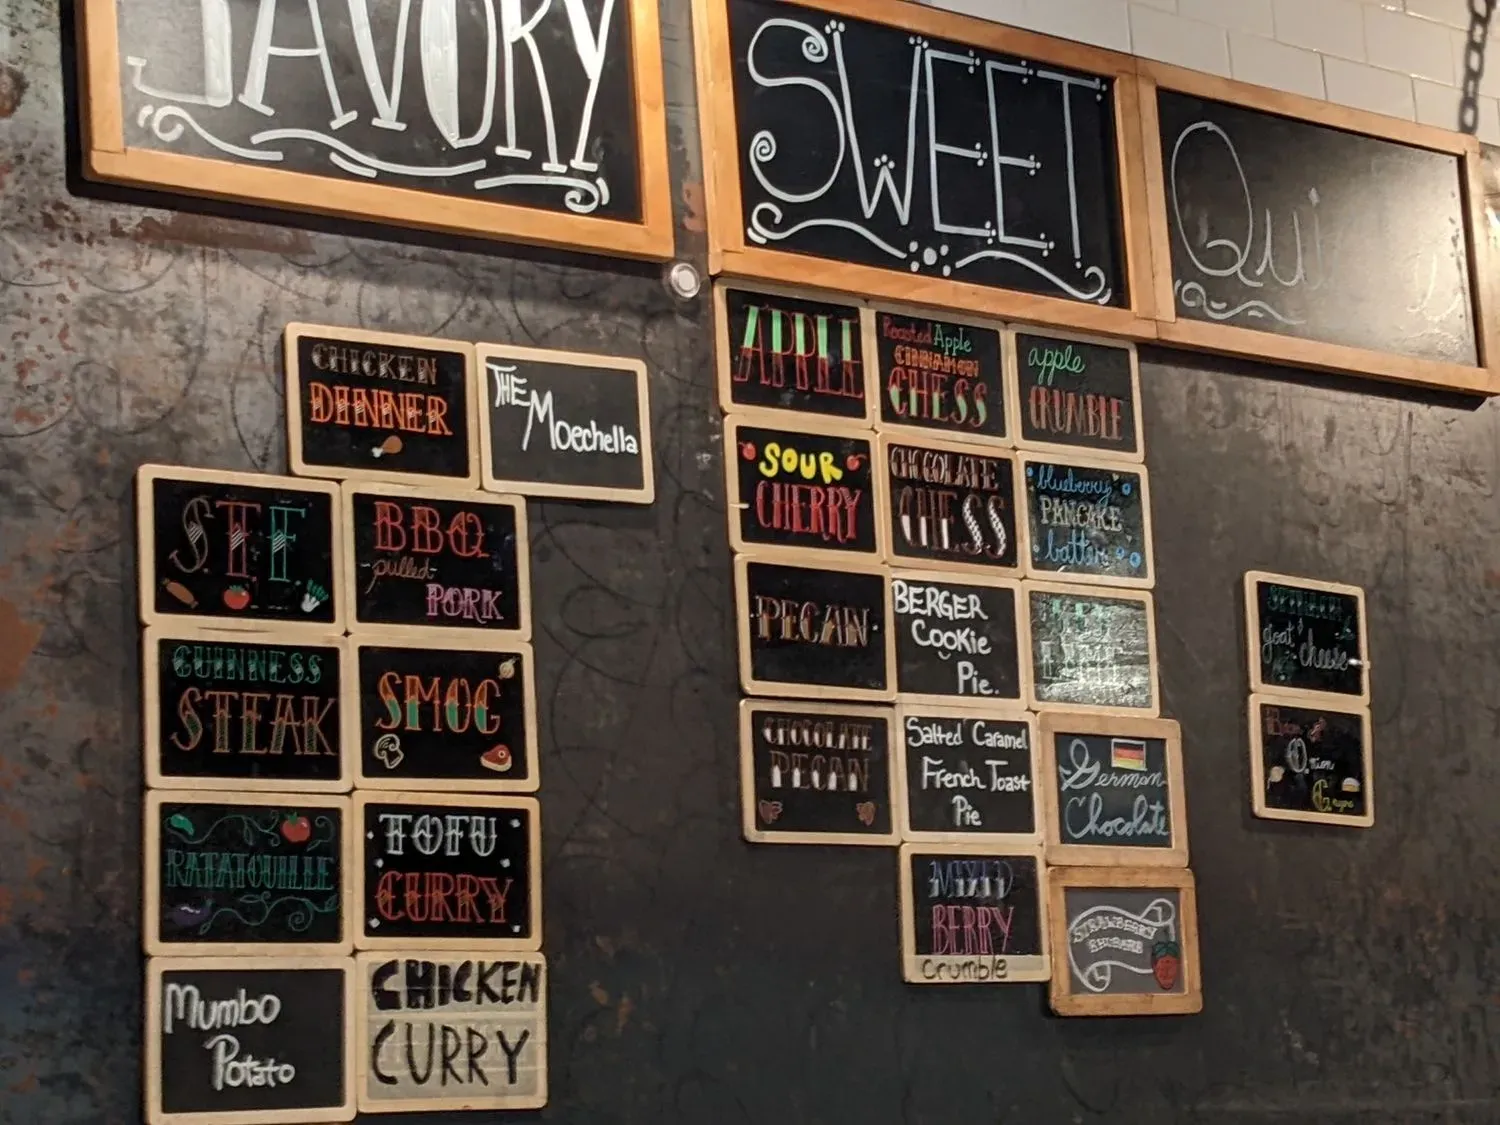 SAVORY
SWEET
Qui
CHICKEN
DINNER
THE
Moechella
STF
BBQ
pulled
PORK
GUINNESS
STEAK
SMOG
RATATOUILLE
TOFU
CURRY
Mumbo
Potato
CHICKEN
CURRY
APPLE
Roasted Apple
CINNAMON
CHESS
apple
CRUMBLE
SOUR
CHERRY
CHOCOLATE
CHESS
blueberry
PANCAKE
batter
PECAN
BERGER
Cookie
Pie.
KEY
LIME
CHOCOLATE
PECAN
Salted Caramel
French Toast
Pie
German
Chocolate
MIXED
BERRY
Crumble
STRAWBERRY
RHUBARB
SPINACH
goat cheese
Onion